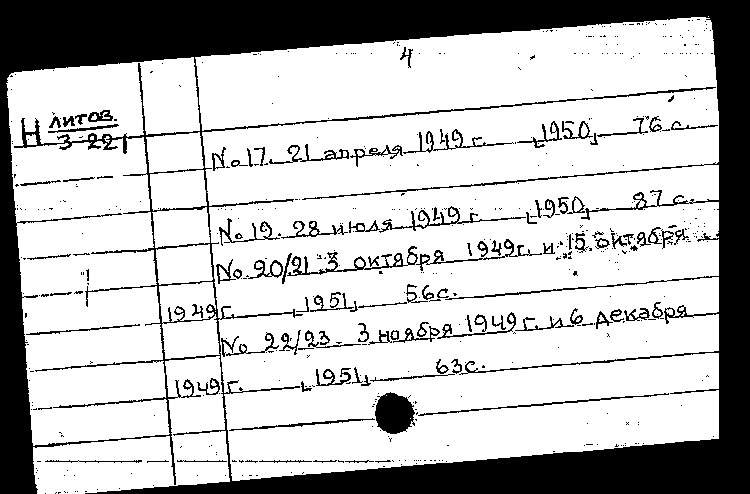 4
Н литов.
3-221
№ 17. 21 апреля 1949 г. [1950] 76 с.
№ 19. 28 июля 1949 г. [1950] 87 с.
№ 20/21 3 октября 1949г. и 15 октября
1949 г. [1951] 56с.
№ 22/23. 3 ноября 1949 г. и 6 декабря
1949 г. [1951] 63с.